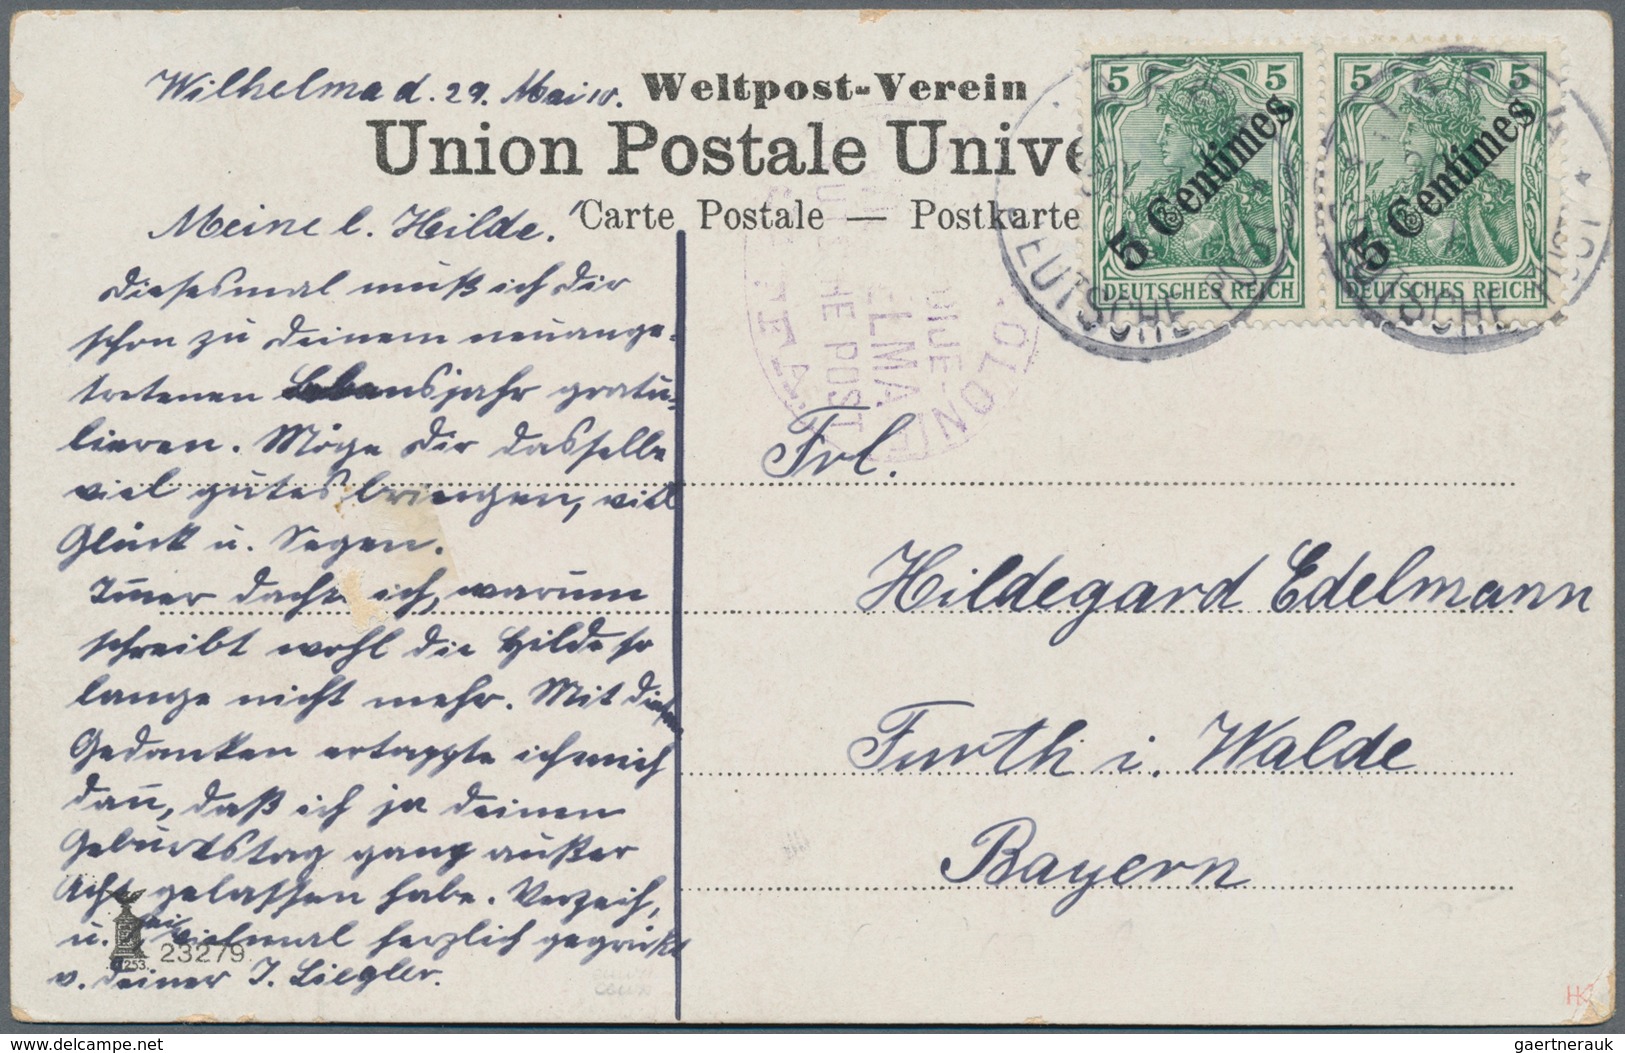 Wilhelma d. 29. Mai 10.
Weltpost-Verein
Union Postale Unive
Carte Postale — Postkarte
5 5
5 Centimes
DEUTSCHES REICH
5 5
5 Centimes
DEUTSCHES REICH
DEUTSCHE POST
DEUTSCHE POST
Meine l. Hilde!
Diesesmal muß ich dir
schon zu deinem neuange-
tretenen Lebensjahr gratu-
lieren. Möge dir dasselbe
viel gutes bringen, viel
Glück u. Segen.
Immer dachte ich, warum
schreibt wohl die Hilde so
lange nicht mehr. Mit diesen
Gedanken ertappte ich mich
dann, daß ich ja deinen
Geburtstag ganz außer
Acht gelassen habe. Verzeih,
u. sei vielmal herzlich gegrüßt
v. deiner J. Liegler.
253.
23279
Frl.
Hildegard Edelmann
Furth i. Walde
Bayern
HK
delcampe.net
gaertnerauk